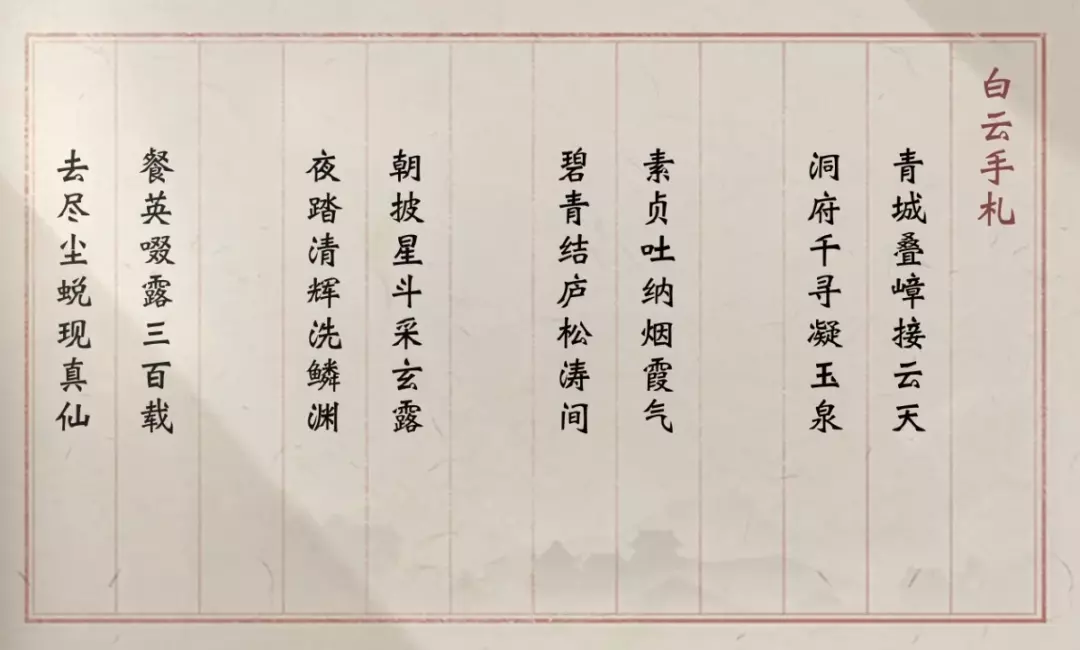 白云手札
青城叠嶂接云天
洞府千寻凝玉泉
素贞吐纳烟霞气
碧青结庐松涛间
朝披星斗采玄露
夜踏清辉洗鳞渊
餐英啜露三百载
去尽尘蜕现真仙